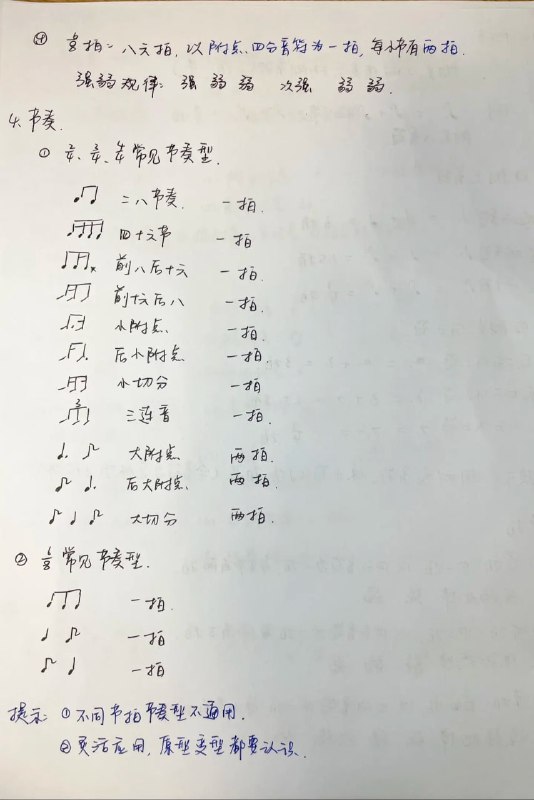 ④ 6/8拍：八六拍，以附点四分音符为一拍，每小节有两拍.
强弱规律：强 弱 弱 次强 弱 弱.
4. 节奏.
① 2/4、3/4、4/4常见节奏型.
二八节奏. 一拍.
四十六节 一拍
前八后十六 一拍.
前十六后八 一拍.
小附点. 一拍.
后小附点 一拍.
小切分 一拍
三连音 一拍.
大附点 两拍.
后大附点. 两拍.
大切分 两拍.
② 6/8常见节奏型.
一拍.
一拍.
一拍
提示：① 不同节拍节奏型不通用.
② 灵活应用，原型变型都要认识.